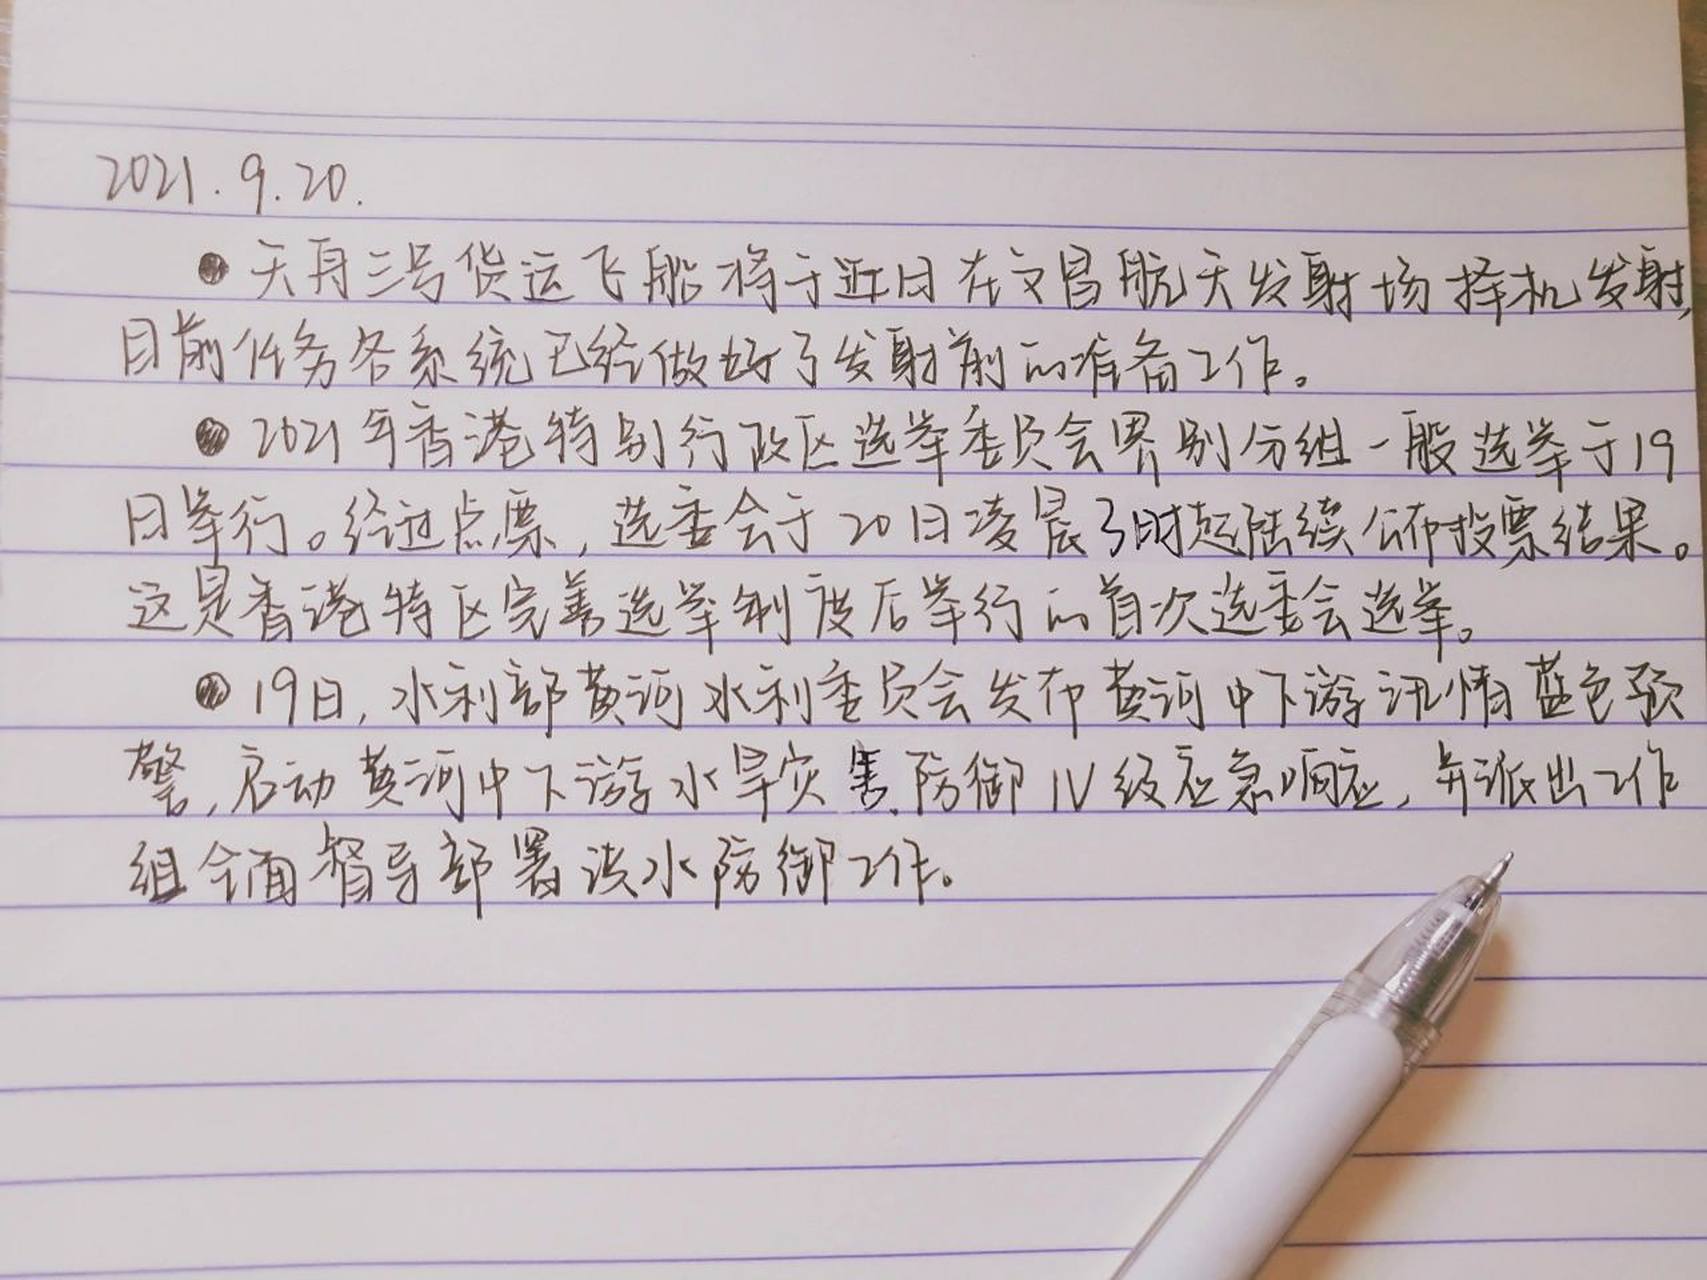 2021.9.20.
●天舟三号货运飞船将于近日在文昌航天发射场择机发射,
目前任务各系统已经做好了发射前的准备工作。
●2021年香港特别行政区选举委员会界别分组一般选举于19
日举行。经过点票,选委会于20日凌晨3时起陆续公布投票结果。
这是香港特区完善选举制度后举行的首次选委会选举。
●19日,水利部黄河水利委员会发布黄河中下游汛情蓝色预
警,启动黄河中下游水旱灾害防御IV级应急响应,并派出工作
组全面督导部署洪水防御工作。